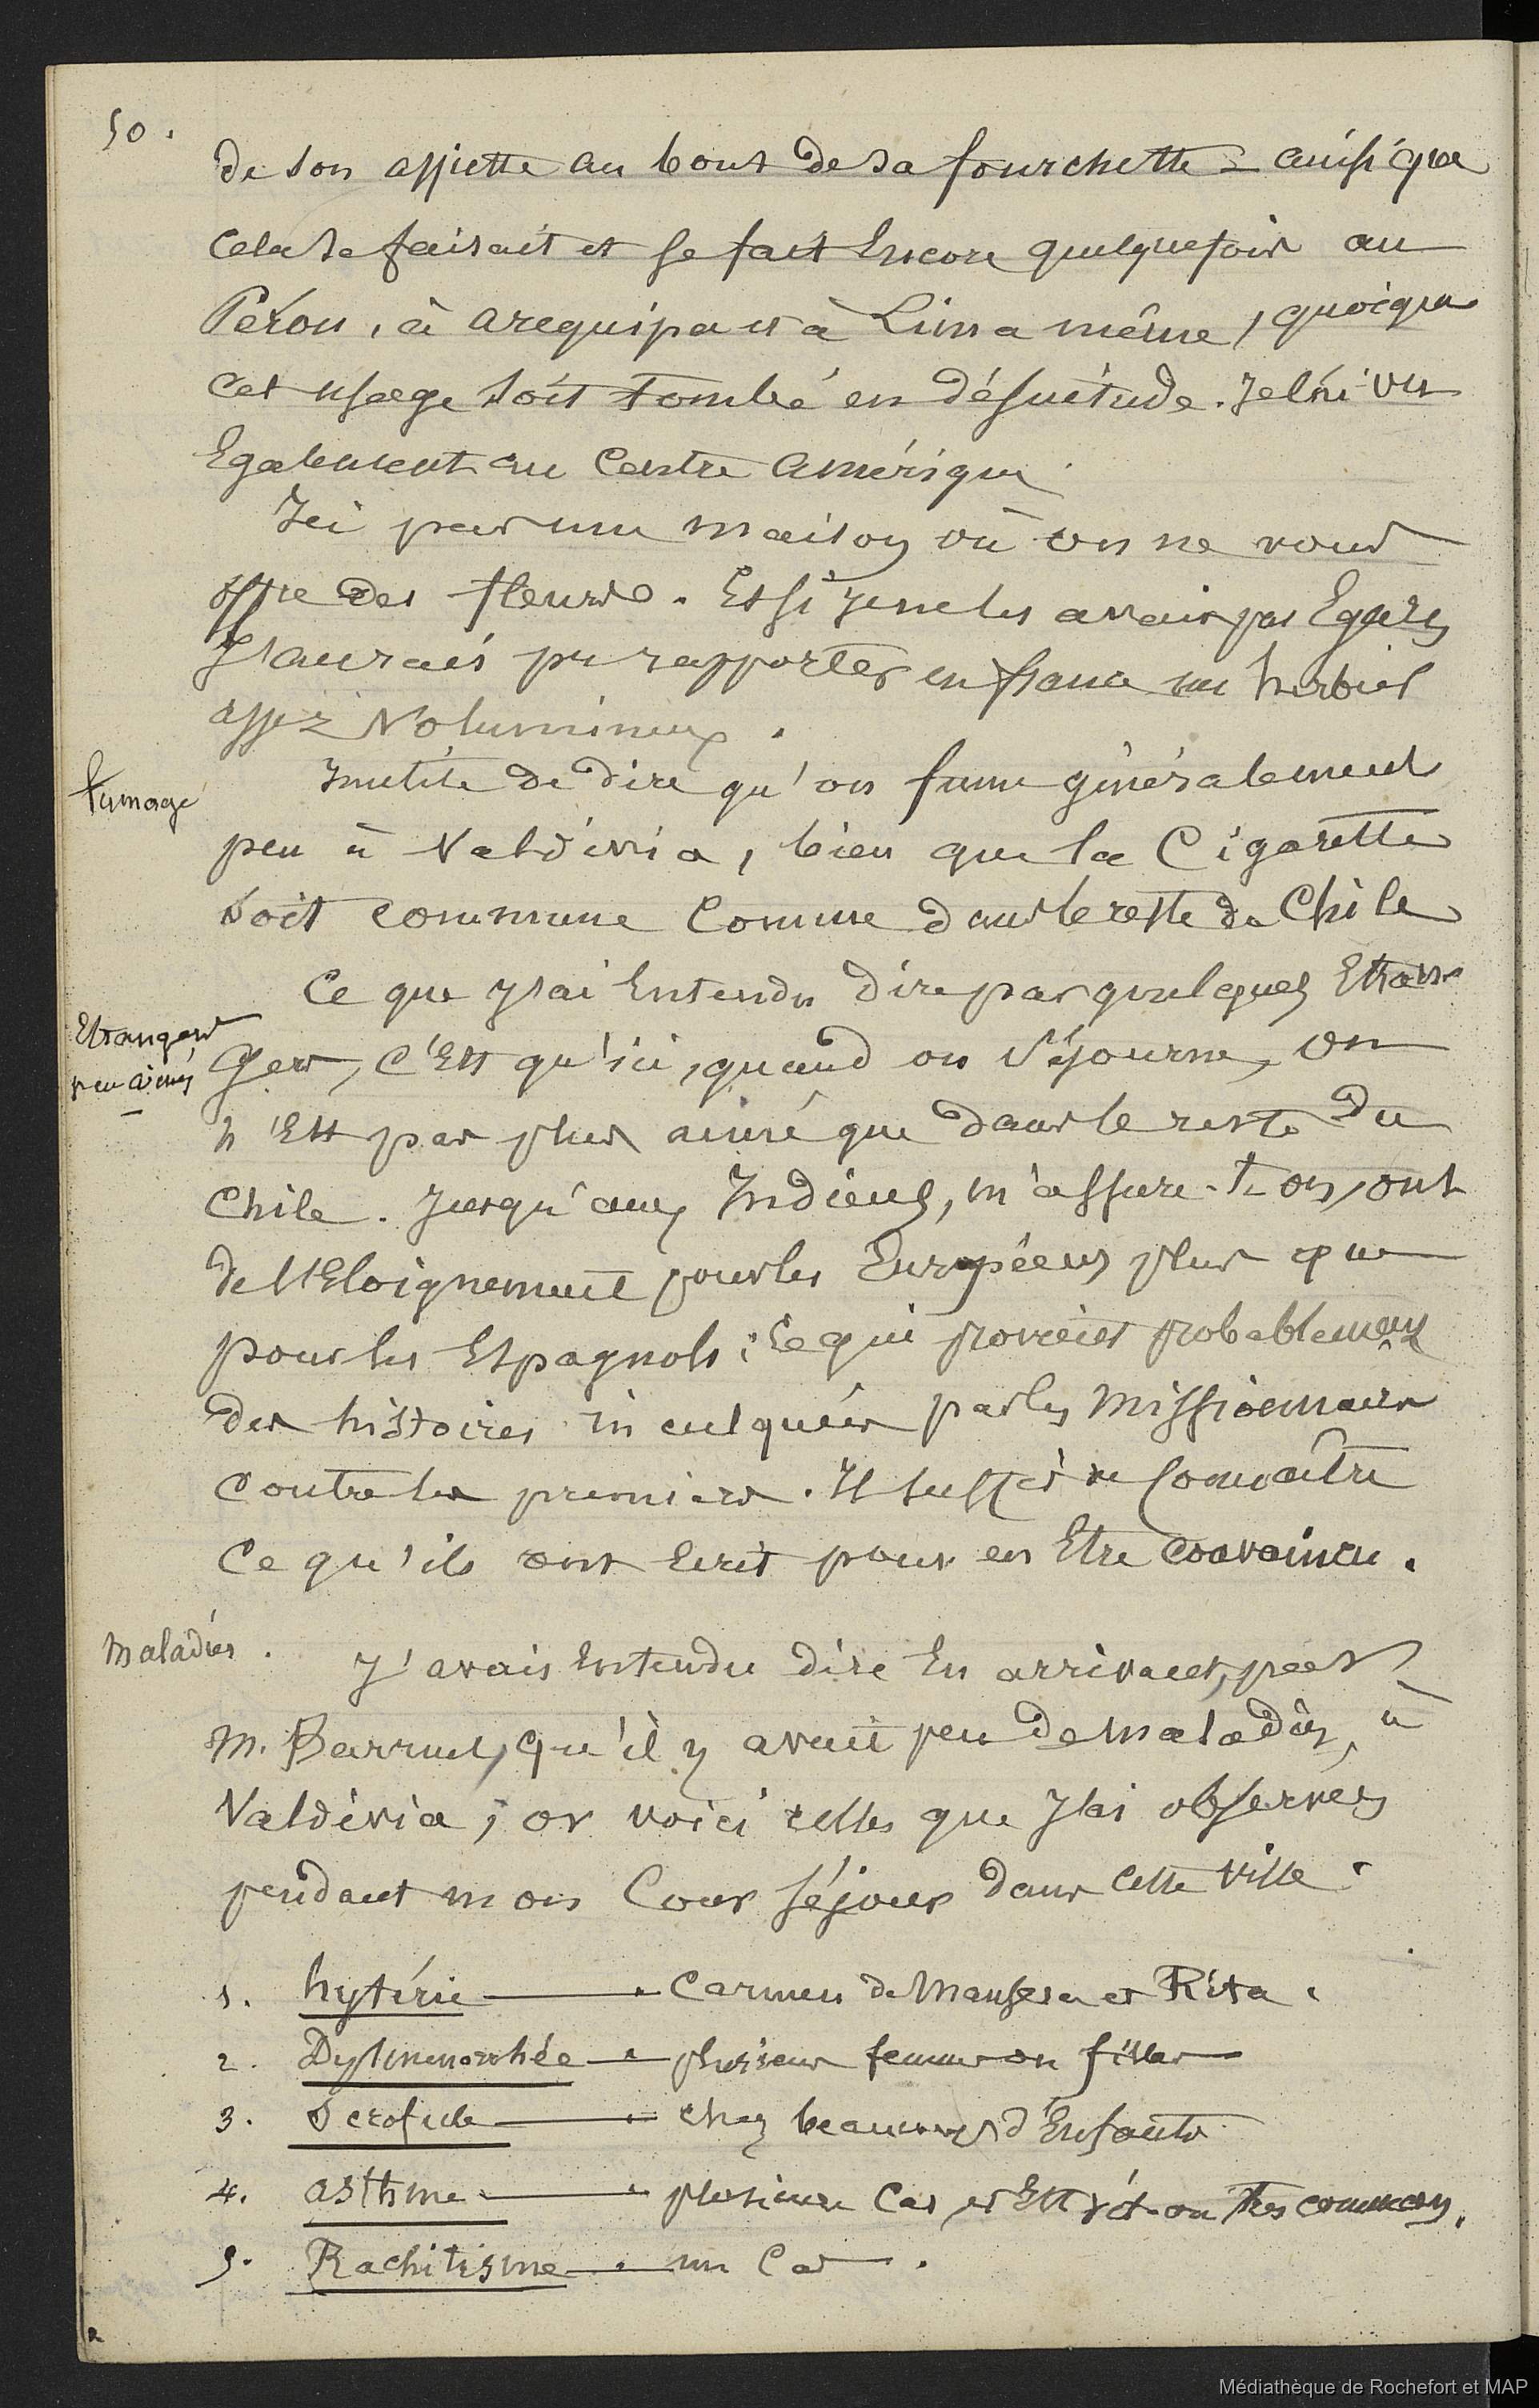 50.
de son assiette au bout de sa fourchette = ainsi que
cela se faisait et se fait Encore quelquefois au
Pérou, à arequipa et à Lima même, quoique
cet usage soit tombé en désuétude. Je l'ai vu
Egalement au Centre Amérique.
Ici pas une maison où on ne vous
offre des fleurs. Et si je ne les avais pas Egarés
J'aurais pu rapporter en france un herbier
assez Volumineux.
fumage
Inutile de dire qu'on fume généralement
peu à Valdivia, bien que la Cigarette
soit commune Comme dans le reste du Chile
Etrangers
peu aimés
Ce que j'ai Entendu dire par quelques Etran-
gers, c'Est qu'ici, quand on séjourne, on
n'Est pas plus aimé que dans le reste du
Chile. Jusqu'aux Indiens, m'assure-t-on, ont
de l'Eloignement pour les Européens plus que
pour les Espagnols; Ce qui provient probablement
des histoires inculquées par les Missionnaires
contre les premiers. Il suffit de Connaître
Ce qu'ils ont Ecrit pour en Etre convaincu.
Maladies.
J'avais Entendu dire En arrivant, par
M. Barruel, qu'il y avait peu de maladies, à
Valdivia; or voici celles que J'ai observées
pendant mon Cour séjour dans Cette Ville.
1. hytérie — Carmen de et Rita.
2. Dysménorrhée — plusieurs femmes ou filles
3. Scrofule — chez beaucoup d'Enfants
4. asthme — plusieurs Cas, et Est dit-on très commun.
5. Rachitisme — un Cas.
Médiathèque de Rochefort et MAP